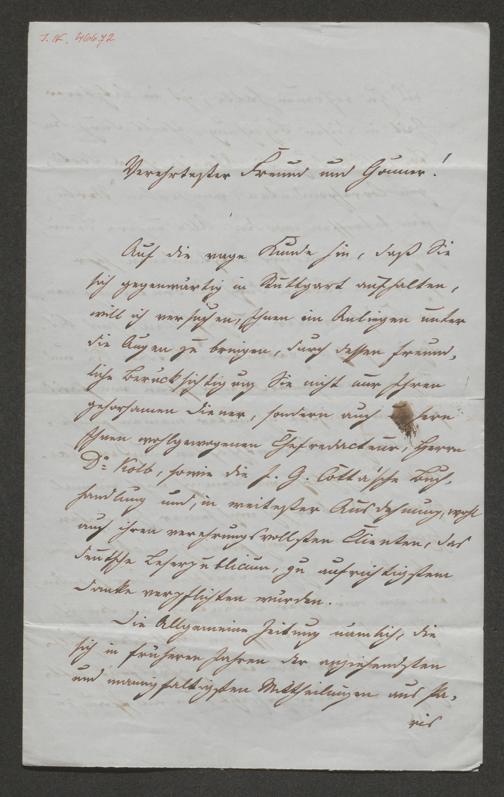 I. N. 46672
Verehrtester Freund und Gönner!
Auf die vage Kunde hin, daß Sie
sich gegenwärtig in Stuttgart aufhalten,
will ich versuchen, Ihnen ein Anliegen unter
die Augen zu bringen, durch dessen freund-
liche Berücksichtigung Sie nicht nur Ihren
gehorsamen Diener, sondern auch
Ihnen wohlgewogenen Chefredacteur, Herrn
Dr. Kolb, sowie die J. G. Cotta'sche Buch-
handlung und, in weitester Ausdehnung, wohl
auch ihren verehrungsvollsten Klienten, das
deutsche Leserpublicum, zu aufrichtigstem
Danke verpflichten würden.
Die Allgemeine Zeitung nämlich, die
sich in früheren Jahren der anziehendsten
und mannigfaltigsten Mittheilungen aus Pa-
ris